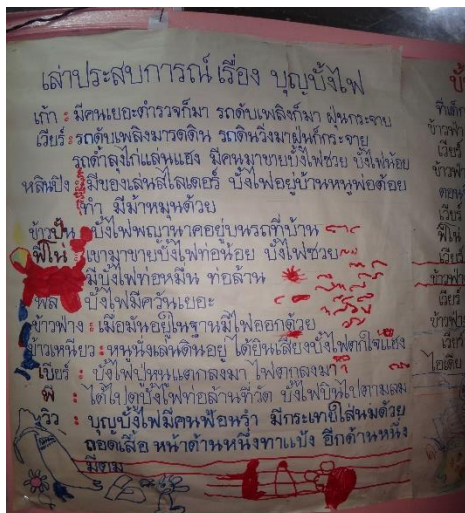 เล่าประสบการณ์ เรื่อง บุญบั้งไฟ
เก้า : มีคนเยอะตำรวจก็มา รถดับเพลิงก็มา ฝุ่นกระจาย
เวียร์ : รถดับเพลิงมารดดิน รถดินวิ่งมาฝุ่นก็กระจาย
รถดำลุงไก่แล่นแฮง มีคนมาขายบั้งไฟช่วย บั้งไฟน้อย
หลินปิง : มีของเล่นสไลเดอร์ บั้งไฟอยู่บ้านหนูพ่อต้อย
ทำ มีม้าหมุนด้วย
ข้าวปั้น บั้งไฟพญานาคอยู่บนรถที่บ้าน
พีโน่ เขามาขายบั้งไฟท่อน้อย บั้งไฟช่วย
มีบั้งไฟท่อหมื่น ท่อล้าน
พล บั้งไฟมีควันเยอะ
ข้าวฟ่าง : เมื่อมันอยู่ในฐานมีไฟออกด้วย
ข้าวเหนียว : หนูนั่งเล่นดินอยู่ ได้ยินเสียงบั้งไฟตกใจแฮง
เบียร์ : บั้งไฟปู่หนูแตกลงมา ไฟตกลงมา
พี : ได้ไปดูบั้งไฟท่อล้านที่วัด บั้งไฟบินไปตามลม
วิว : บุญบั้งไฟมีคนฟ้อนรำ มีกระเทยใส่นมด้วย
ถอดเสื้อ หน้าด้านหนึ่งทาแป้ง อีกด้านหนึ่ง
มีตม